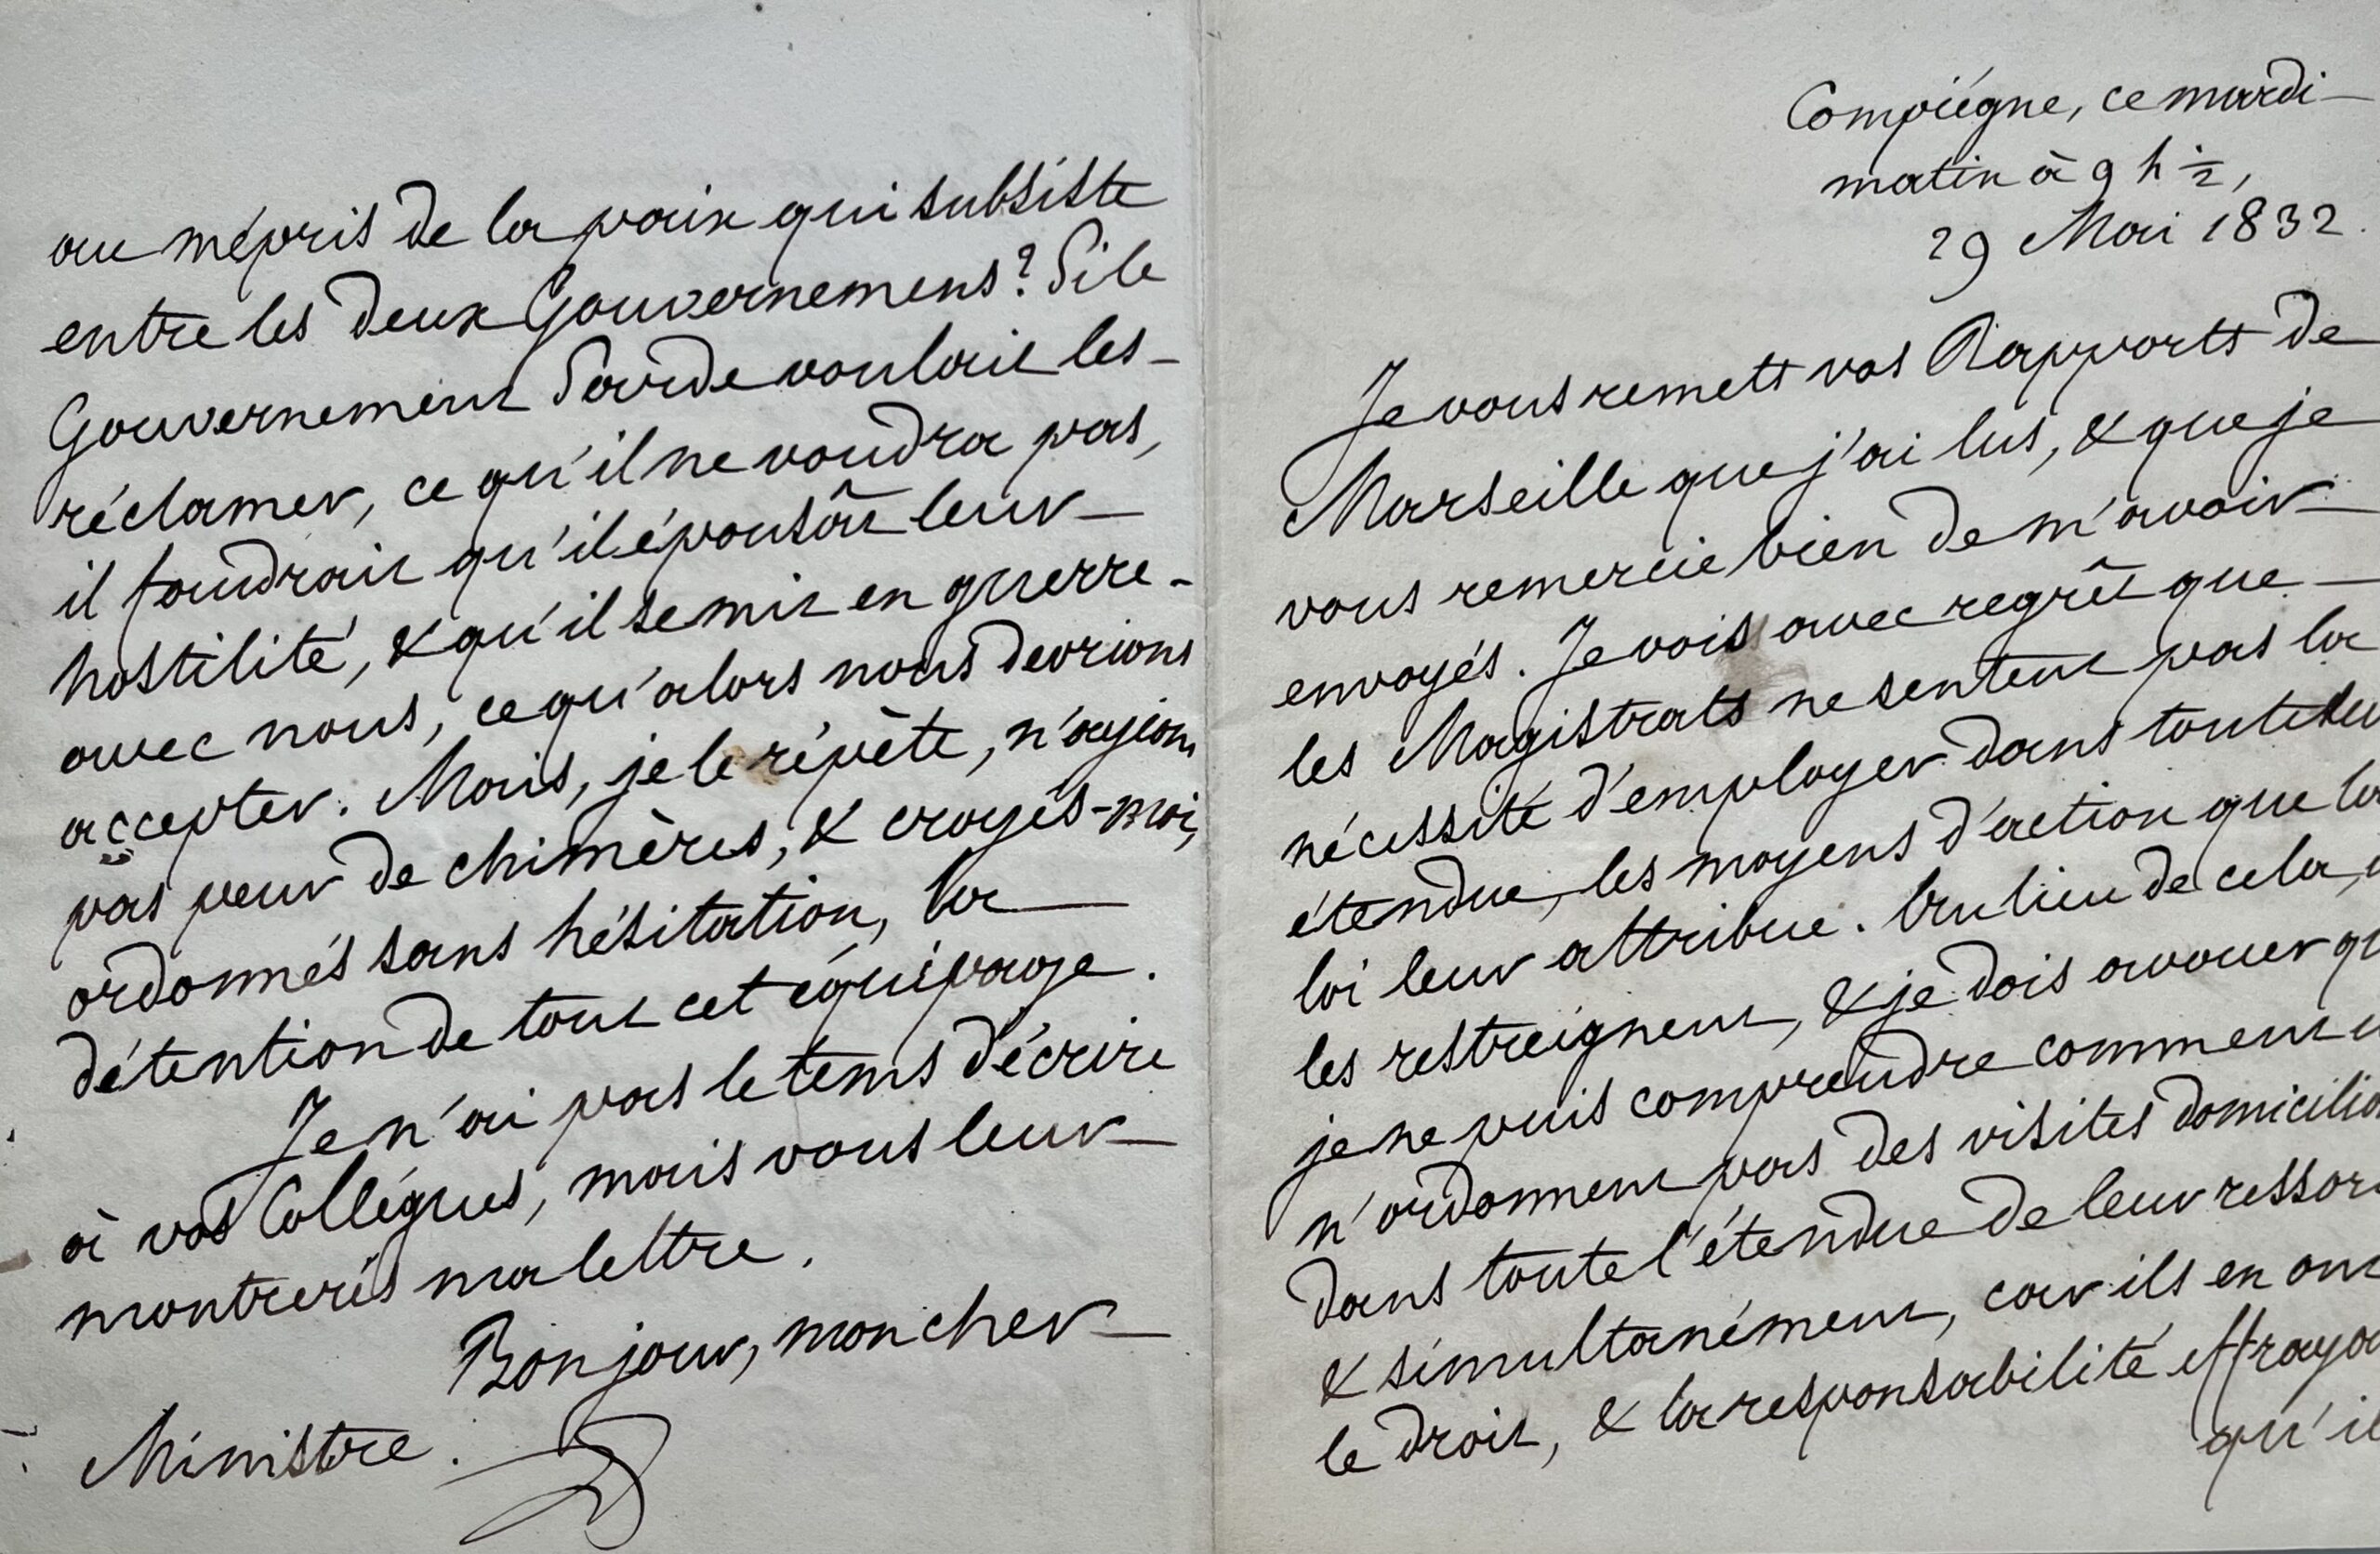 au mépris de la paix qui subsiste
entre les deux Gouvernemens? Si le
Gouvernement Sarde voulait les
réclamer, ce qu'il ne voudra pas,
il faudrait qu'il épousât leur
hostilité, & qu'il se mit en guerre
avec nous, ce qu'alors nous devrions
accepter. Mais, je le répète, n'ayions
pas peur de chimères, & croyés-moi,
ordonnés sans hésitation, la
détention de tout cet équipage.
Je n'ai pas le tems d'écrire
à vos Collégues, mais vous leur
montrerés ma lettre.
Bonjour, mon cher
Ministre.
Compiégne, ce mardi
matin à 9 h ½,
29 Mai 1832.
Je vous remets vos Rapports de
Marseille que j'ai lus, & que je
vous remercie bien de m'avoir
envoyés. Je vois avec regrêt que
les Magistrats ne sentent pas la
nécessité d'employer dans toute leu
étendue, les moyens d'action que la
loi leur attribue. Au lieu de cela,
les restreignent, & je dois avouer qu
je ne puis comprendre comment
n'ordonnent pas des visites domicilia
dans toute l'étendue de leur ressor
& simultanément, car ils en ont
le droit, & la responsabilité effraya
qu'il